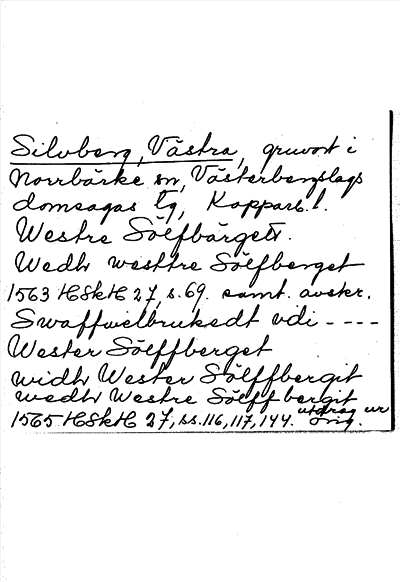 Silvberg, Västra, gruvort i
Norrbärke sn, Västerbergslags
domsagas tg, Kopparb. l.
Westre Sölfbärgett.
Wedh westtre Sölfberget
1563 HSkH 27, s.69. samt. avskr.
Swaffwelbrukedt vdi ----
Wester Sölffberget
widh Wester Sölffbergit
wedh Westre Sölffbergit
1565 HSkH 27, ss.116, 117, 144. utdrag ur orig.